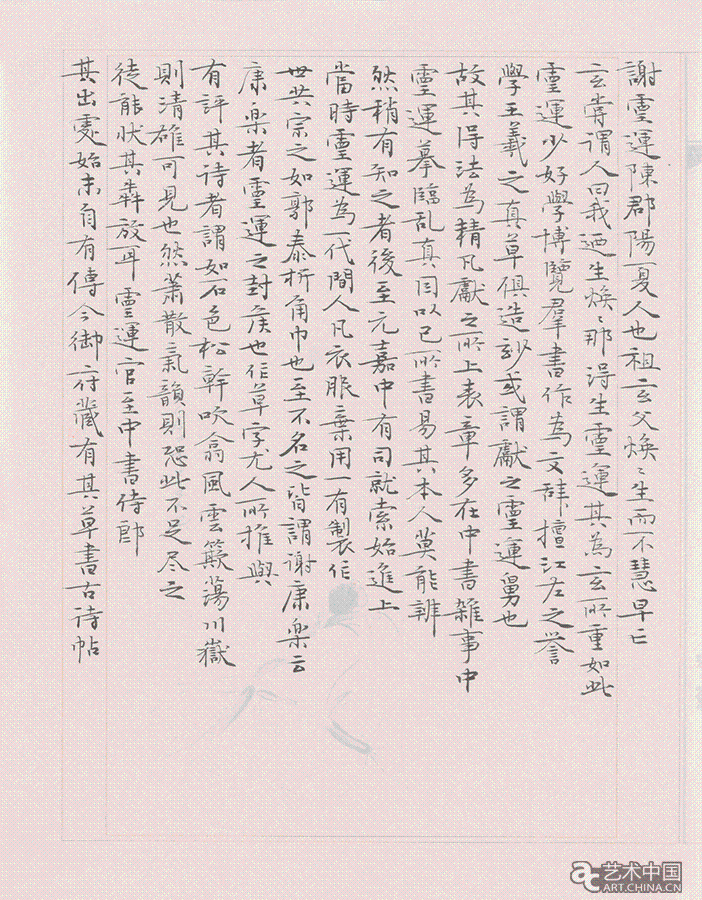 謝靈運陳郡陽夏人也祖玄父煥〻生而不慧早亡
玄嘗謂人曰我迺生煥〻那得生靈運其為玄所重如此
靈運少好學博覽羣書作為文辞擅江左之誉
學王羲之真草俱造妙或謂獻之靈運舅也
故其得法為精凡獻之所上表章多在中書雑事中
靈運摹臨乱真因以己所書易其本人莫能辨
然稍有知之者後至元嘉中有司就索始進上
當時靈運為一代間人凡衣服棄用一有製作
世共宗之如郭泰折角巾也至不名之皆謂谢康楽云
康楽者靈運之封侯也作草字尤人所推與
有評其诗者謂如石色松幹吹翕風雲簸蕩川嶽
則清雄可見也然蕭散氣韻則恐此不足尽之
徒能状其犇放耳靈運官至中書侍郎
其出處始末自有傳今御府藏有其草書古诗帖
艺术中国
ART.CHINA.CN